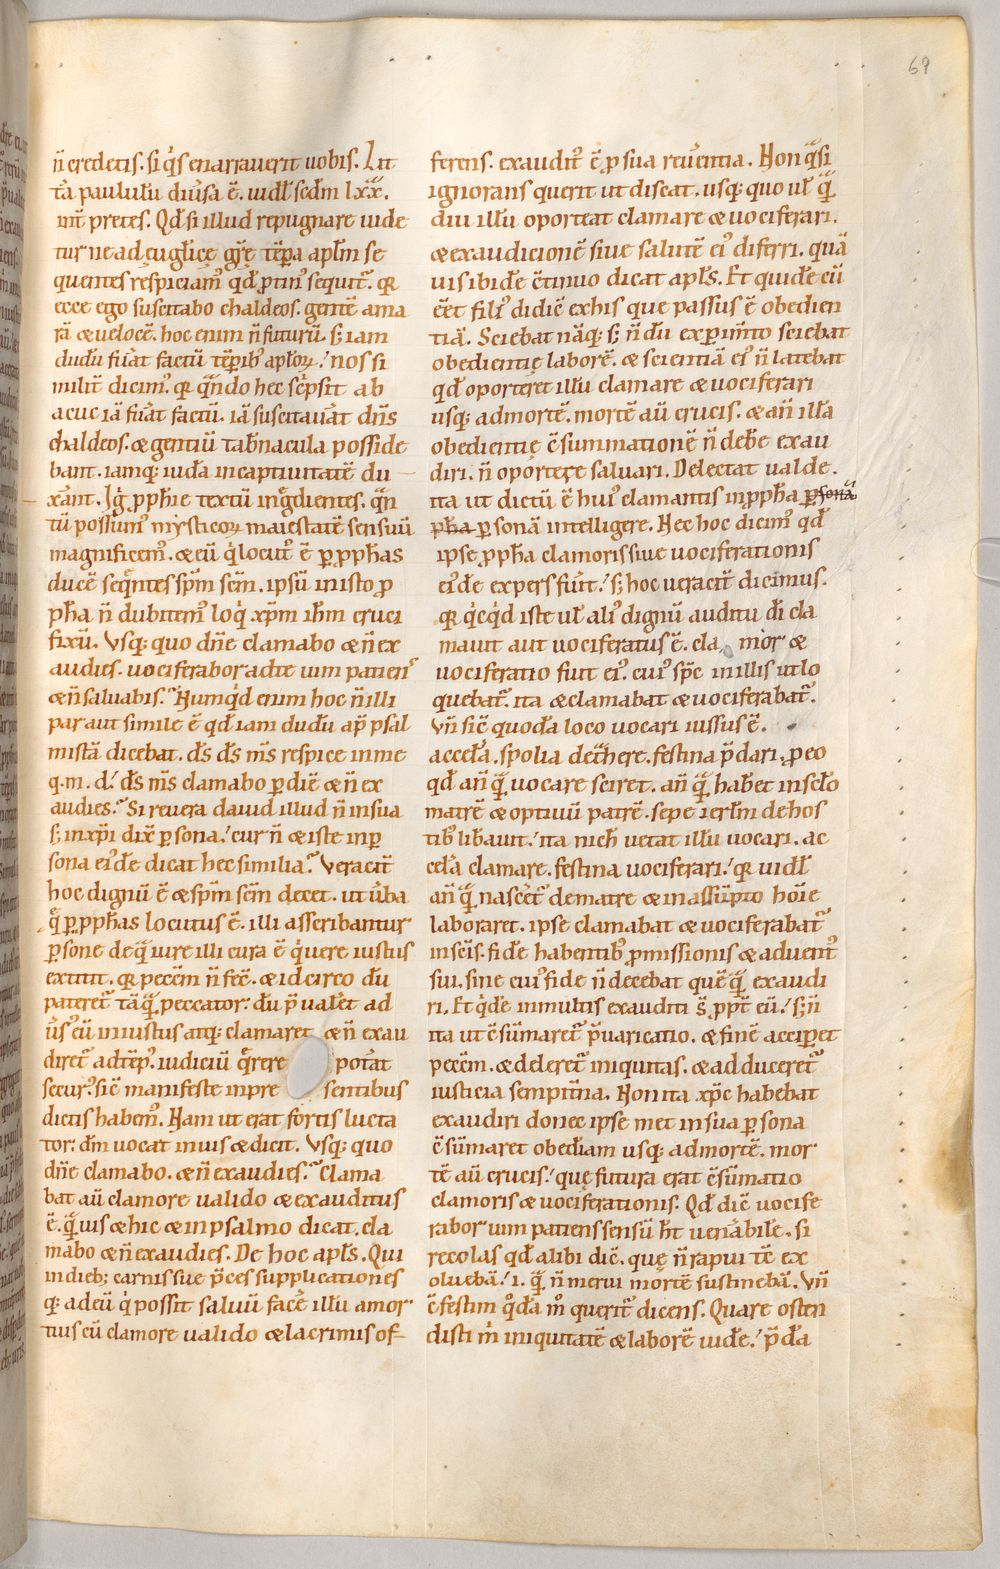 69
n̄ credetis. si q̇s enarrauerit uobis. Lit
tᷓa paululū diūsa ē. uidl̄ sedm̄ lxx̄.
int̄p̄tes. Qđ si illud repugnare uide
tur ne ad euḡlicę gr̄ę tēp̄a apl̄m se
quentes respiciam᷒ qđ ꝓtin᷒ sequit᷑. qꝛ
ecce ego suscitabo chaldeos. gentē ama
rā ⁊ uelocē. hoc enim n̄ futurū. s; iam
dudū fūat factū tēp̄ib᷒ apl̄oꝝ.᷒ nos si
milit̄ dicim᷒. qꝛ qn̄do hec sc̄psit ab
acuc iā fūat factū. iā suscitauāt dn̄s
chaldeos. ⁊ gentiū tab̄nacula posside
bant. iamq; iuđa in captiuitatē du
xānt. Iḡ ꝓph̄ie textū inḡdientes. qn̄
tū possum᷒ mysticoꝝ maiestatē sensuū
magnificem᷒. ⁊ eū q̇ locut᷒ ē ꝑ ꝓph̄as
ducē seq̄ntes sp̄m sc̄m. ipsū in isto ꝓ
ph̄a n̄ dubitem᷒ loq̇ xp̄m ih̄m cruci
fixū. Vsq; quo dn̄e clamabo ⁊ n̄ ex
audies. uociferabor ad te uim patien᷒
⁊ n̄ saluabis.᷒ Numq̇d enim hoc n̄ illi
par aut simile ē qđ iam dudū ap̄ psal
mistā dicebat. ds̄ ds̄ ms̄ respice in me
q. m. d.᷒ ds̄ ms̄ clamabo ꝑ diē ⁊ n̄ ex
audies.᷒ Si reuera dauid illud n̄ in sua
s; in xp̄i dix̄ ꝑsona.᷒ cur n̄ ⁊ iste in ꝑ
sona ei᷒de dicat hec similia.᷒ Veracit̄
hoc dignū ē ⁊ sp̄m sc̄m decet. ut ūba
q̄ ꝑ ꝓph̄as locutus ē. illi asseribantur
ꝑsone de q̄ iure illi cura ē q̇rere iustus
extitit. qꝛ peccm̄ n̄ fec̄. ⁊ idcirco dū
pateret᷑ tāq̄ peccator. dū p̄ualet ad
ūs᷒ eū iniustus atq; clamaret ⁊ n̄ exau
diret᷑ ad tēp᷒. iudiciū q̄rere potāt
secur᷒. sic̄ manifeste in pre sentibus
dictis habem᷒. Nam ut erat fortis lucta
tor. dm̄ uocat in ius ⁊ dicit. Vsq; quo
dn̄e clamabo. ⁊ n̄ exaudies.᷒ Clama
bat aū clamore ualido ⁊ exauditus
ē. q̄uis ⁊ hic ⁊ in psalmo dicat. cla
mabo ⁊ n̄ exaudies. De hoc apl̄s. Qui
in dieb; carnis sue p̄ces supplicationes
q; ad eū q̇ possit saluū facē illū a mor
tuis cū clamore ualido ⁊ lacrimis of
ferens. exaudit᷒ ē ꝓ sua reūentia. Non q̄si
ignorans querit ut discat. usq; quo ul̄ q̄
diu illū oporteat clamare ⁊ uociferari.
⁊ exaudicionē siue salutē ei᷒ diferri. quā
uis ibide ꝯtinuo dicat apl̄s. Et quide cū
ēet fili᷒ didic̄ ex his que passus ē obedien
tiā. Sciebat nāq; s; n̄dū exꝑim̄to sciebat
obedientię laborē. ⁊ scientiā ei᷒ n̄ latebat
qđ oporteret illū clamare ⁊ uociferari
usq; ad mortē. mortē aū crucis. ⁊ an̄ illā
obedientię ꝯsummationē n̄ debe exau
diri. n̄ oportere saluari. Delectat ualde.
ita ut dictū ē hui᷒ clamantis in ꝓph̄a ꝑsonā
ph̄a ꝑsonā intelligere. Nec hoc dicim᷒ qđ
ipse ꝓph̄a clamoris siue uociferationis
ei᷒de expers fūit.᷒ s; hoc ueracit̄ dicimus.
qꝛ q̇cq̇d iste ul̄ ali᷒ dignū auditu dī cla
mauit aut uociferatus ē. cla mor ⁊
uociferatio fuit ei᷒. cui᷒ sp̄c in illis ut lo
quebat᷑. ita ⁊ clamabat ⁊ uociferabat᷑.
Vn̄ sic̄ quodā loco uocari iussus ē.
acceła. spolia det̄here. festina p̄dari. ꝓ eo
qđ an̄q̄ uocare sciret. an̄q̄ habet in sclo
matrē ⁊ optiuū patrē. sepe ierl̄m de hos
tib᷒ lib̄auit.᷒ ita nich̄ uetat illū uocari. ac
celā clamare. festina uociferari.᷒ qꝛ uidl̄
an̄q̄ nascēt᷑ de matre ⁊ in assūpto hoīe
laboraret. ipse clamabat ⁊ uociferabat᷑
in sc̄is. fide habentib᷒ ꝓmissionis ⁊ aduent᷒
sui. sine cui᷒ fide n̄ decebat quēq̄ exaudi
ri. Et q̇de in multis exauditi s̄ ꝓpt̄ eū.᷒ s; n̄
ita ut ꝯsūmaret᷑ p̄uaricatio. ⁊ finē acciꝑet
peccm̄. ⁊ deleret᷑ iniquitas. ⁊ adduceret᷑
iusticia sempit̄na. Non ita xp̄c habebat
exaudiri donec ipse met in sua ꝑsona
ꝯsūmaret obedīam usq; ad mortē. mor
tē aū crucis.᷒ quę futura erat ꝯsūmatio
clamoris ⁊ uociferationis. Qđ dic̄ uocife
rabor uim patiens sensū h̄t uenābile. si
recolas qđ alibi dic̄. quę n̄ rapui tē ex
oluebā.᷒ i. q̄ n̄ merui mortē sustinebā. Vn̄
ꝯfestim q̇đa m᷒ querit᷑ dicens. Quare osten
disti m̄ iniquitatē ⁊ laborē uide.᷒ p̄đa